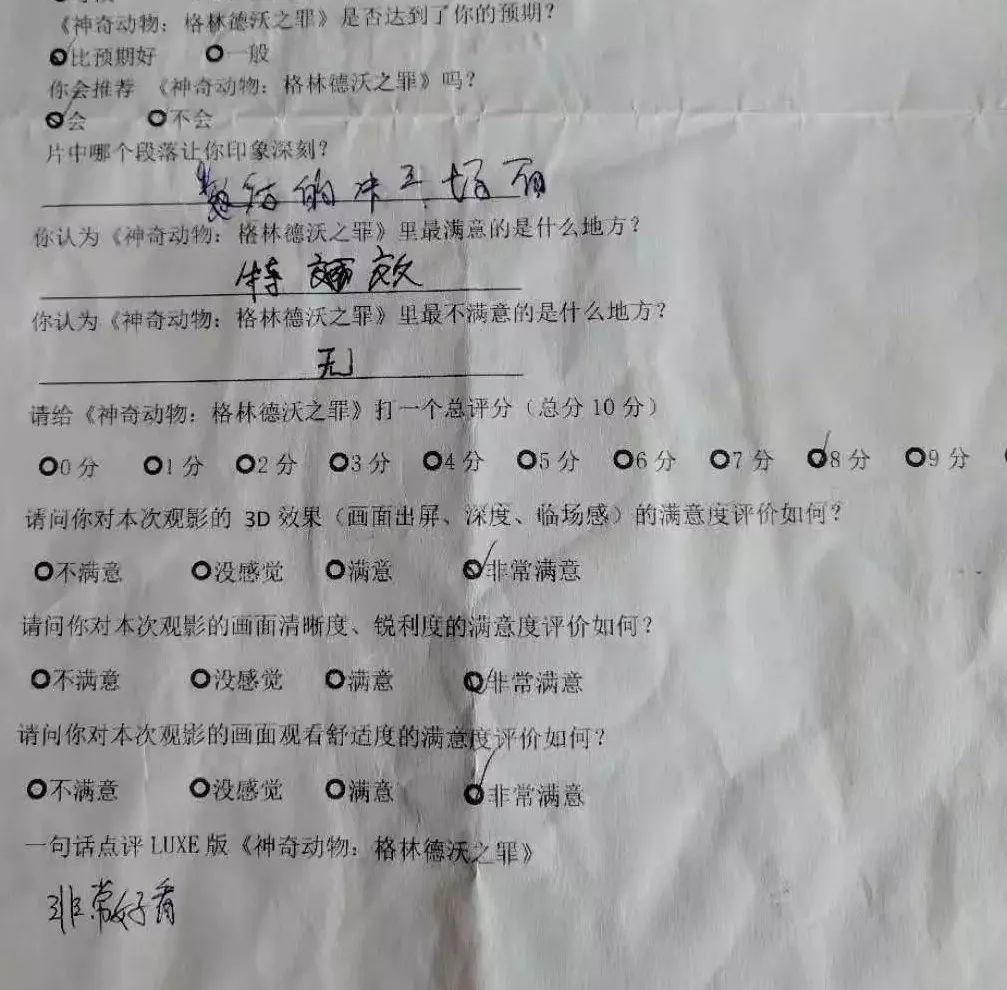 《神奇动物：格林德沃之罪》是否达到了你的预期？
比预期好 一般
你会推荐 《神奇动物：格林德沃之罪》吗？
会 不会
片中哪个段落让你印象深刻？
结的 场面
你认为《神奇动物：格林德沃之罪》里最满意的是什么地方？
特 效
你认为《神奇动物：格林德沃之罪》里最不满意的是什么地方？
无
请给《神奇动物：格林德沃之罪》打一个总评分（总分 10 分）
0 分 1 分 2 分 3 分 4 分 5 分 6 分 7 分 8 分 9 分
请问你对本次观影的 3D 效果（画面出屏、深度、临场感）的满意度评价如何？
不满意 没感觉 满意 非常满意
请问你对本次观影的画面清晰度、锐利度的满意度评价如何？
不满意 没感觉 满意 非常满意
请问你对本次观影的画面观看舒适度的满意度评价如何？
不满意 没感觉 满意 非常满意
一句话点评 LUXE 版《神奇动物：格林德沃之罪》
非常好看